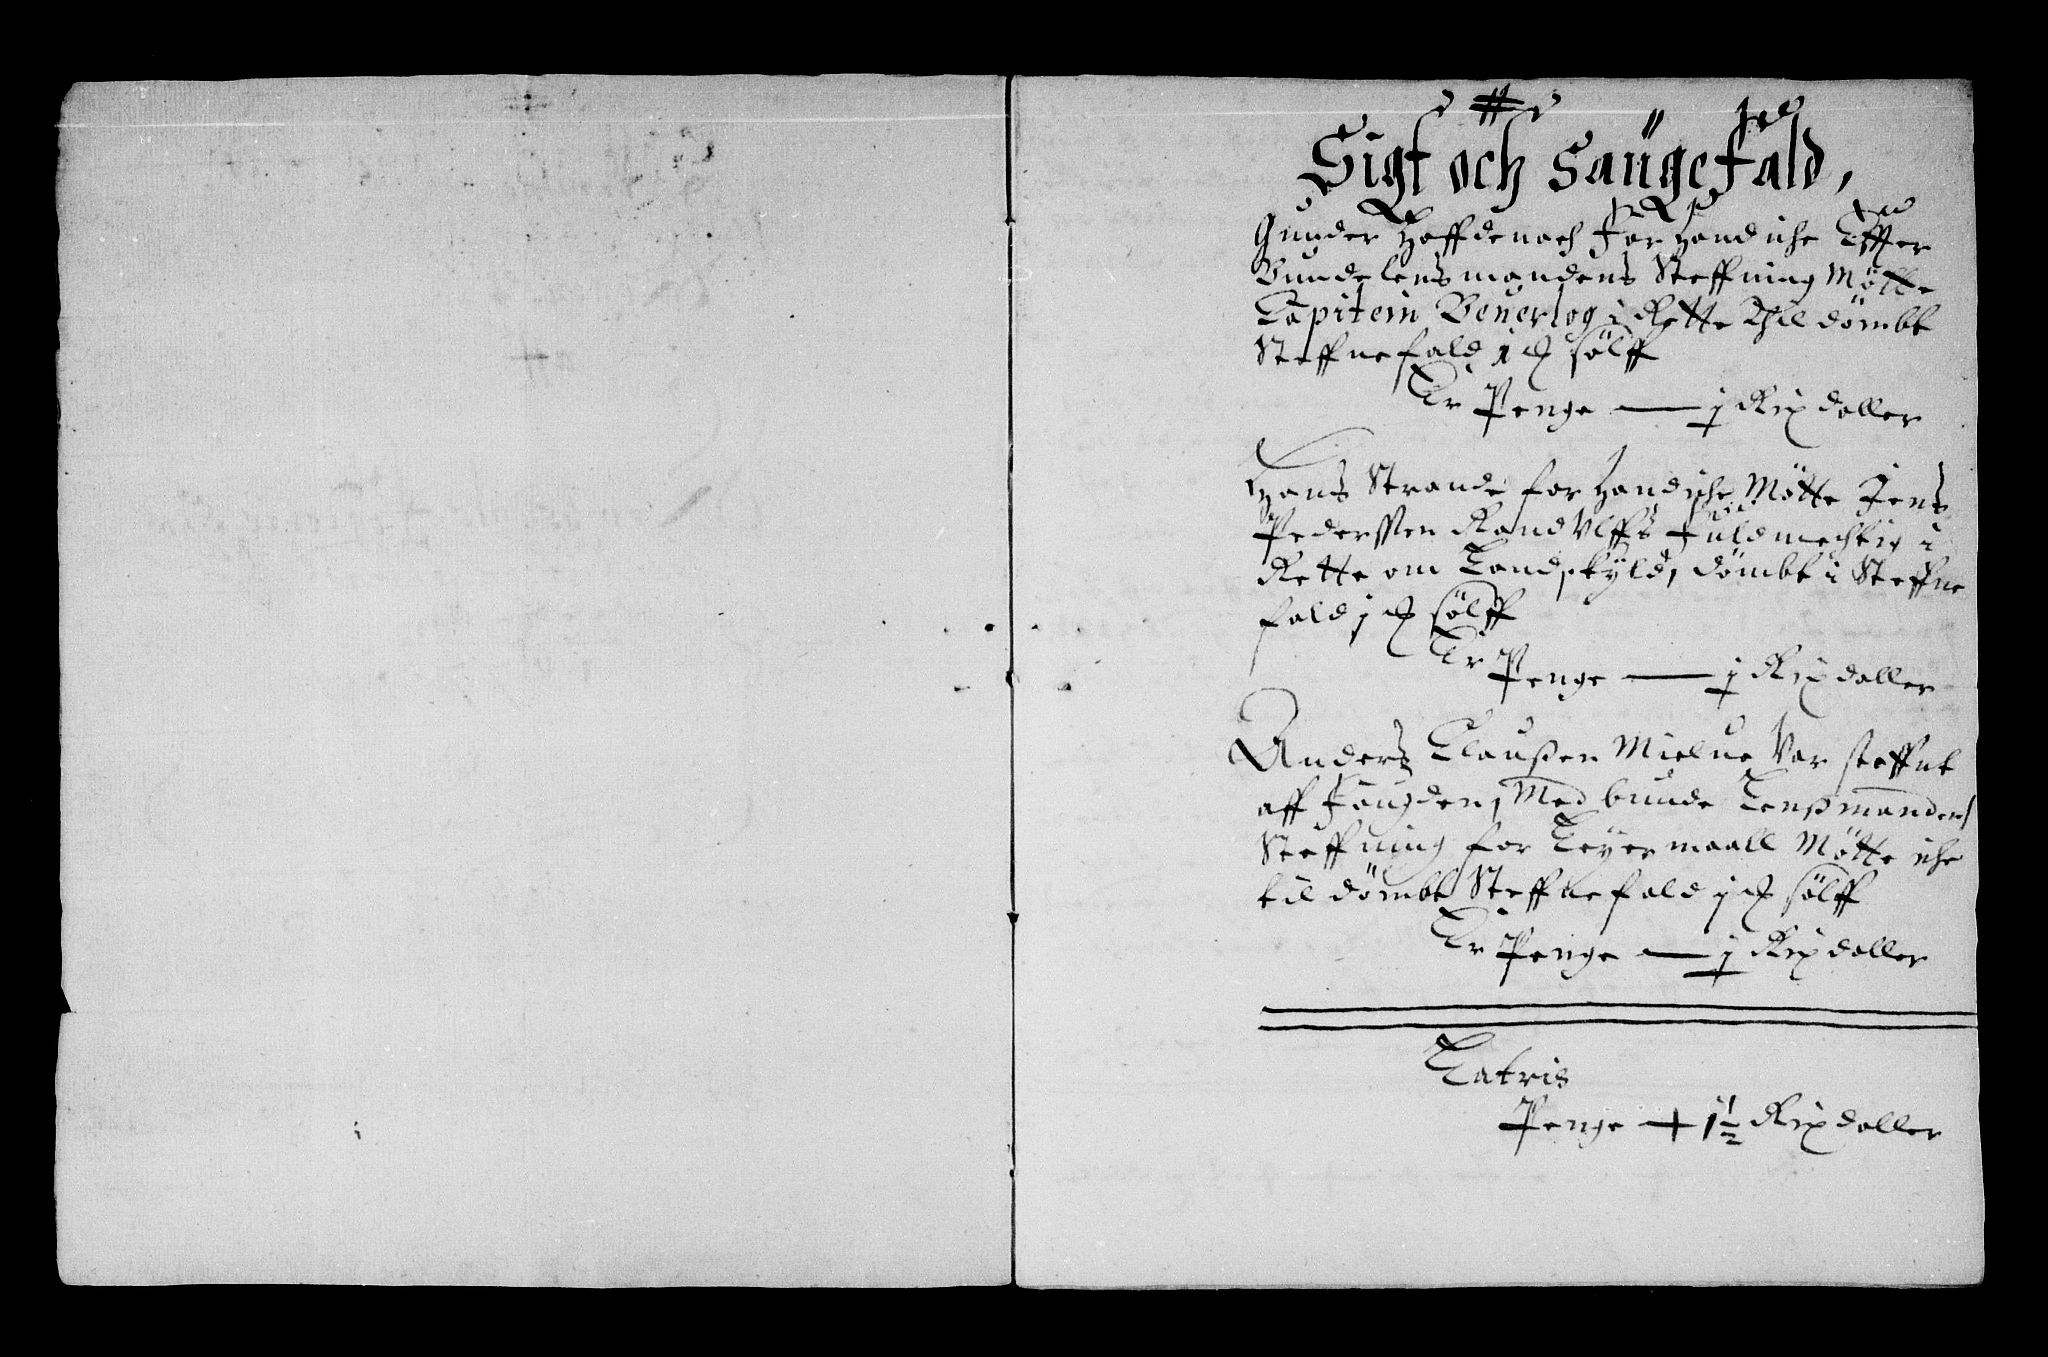 Sigt och Saügefald,
Gunder Hoffdenach forhand iche Effter
Bundelensmandens Steffning Mötte
Capitein Beuerlog i Rette Thil dömbt
Steffnefald j ₰ sölff
Er Penge — j Rixdaller
Hans Strande forhand iche Mötte Jens
Pederssen Randulffs Fuldmechtig i
Rette om Landskyld, dömbt i Steffne
fald j ₰ sölff
Er Penge — j Rixdaller
Anders Claußen Mielue Var steffnt
aff Fougden, Med bunde Lenßmandens
Steffning for Leyermaall Mötte iche
til dömbt Steffnefald j ₰ sölff
Er Penge — j Rixdaller
Latris
Penge + 1½ Rixdaller